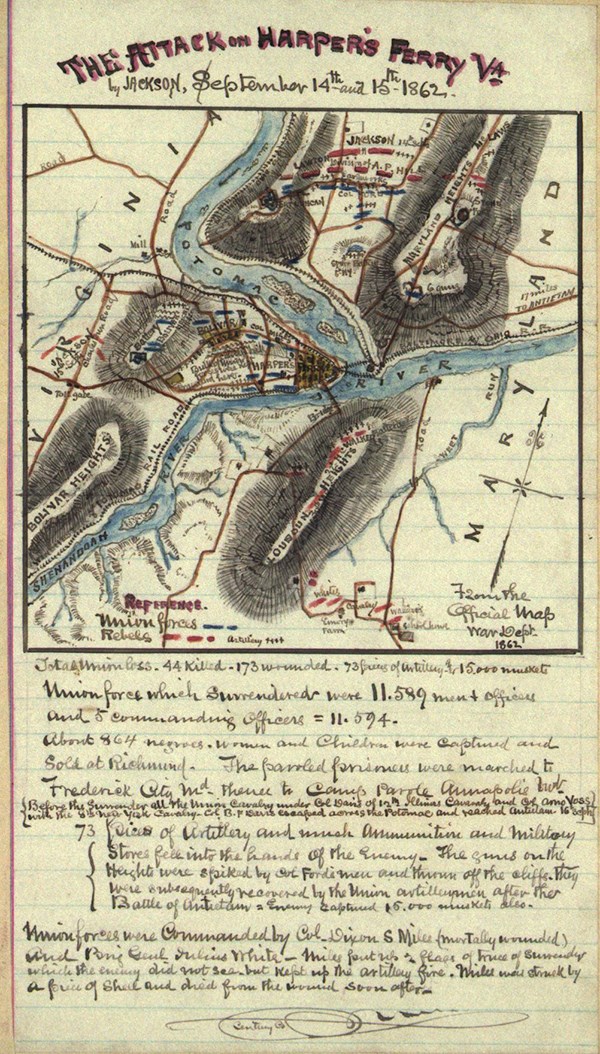 THE ATTACK on HARPER'S FERRY VA
by JACKSON, September 14th and 15th 1862.
VIRGINIA
Road
Road
Mill
POTOMAC
JACKSON
LAWTON
A.P. HILL
MARYLAND HEIGHTS
McLAWS
6 guns
17 miles
TO ANTIETAM
MARYLAND
BALTIMORE & OHIO R.R.
RIVER
BOLIVAR
HARPERS
Tollgate
BOLIVAR HEIGHTS
RAIL ROAD
SHENANDOAH
RIVER
LOUDOUN HEIGHTS
WALKER
Road
RUN
Cavalry
REFERENCE.
Union forces
Rebels
Artillery
From the
Official Map
War Dept.
1862
Total Union loss - 44 killed - 173 wounded - 73 pieces of Artillery & 15,000 muskets
Union force which Surrendered were 11.589 men & officers
and 5 commanding Officers = 11.594.
About 864 negroes. Women and Children were Captured and
Sold at Richmond. The paroled prisoners were marched to
Frederick City Md thence to Camp Parole Annapolis
Before the Surrender all the Union Cavalry under Col Davis of 12th Illinois Cavalry and Col Arno Voss
with the 8th New York Cavalry. Col B.F. Davis escaped across the Potomac and reached Antietam 16 Sept
73 pieces of Artillery and much Ammunition and Military
Stores fell into the hands of the Enemy - The guns on the
Heights were spiked by Col Fords men and thrown off the cliffs. They
were subsequently recovered by the Union artillerymen after the
Battle of Antietam = Enemy captured 15.000 muskets also.
Union forces were Commanded by Col. Dixon S Miles (mortally wounded)
and Brig Genl Julius White - Miles put up a flag of truce of Surrender
which the enemy did not see but kept up the artillery fire. Miles was struck by
a piece of Shell and died from the wound soon after -
Century Co